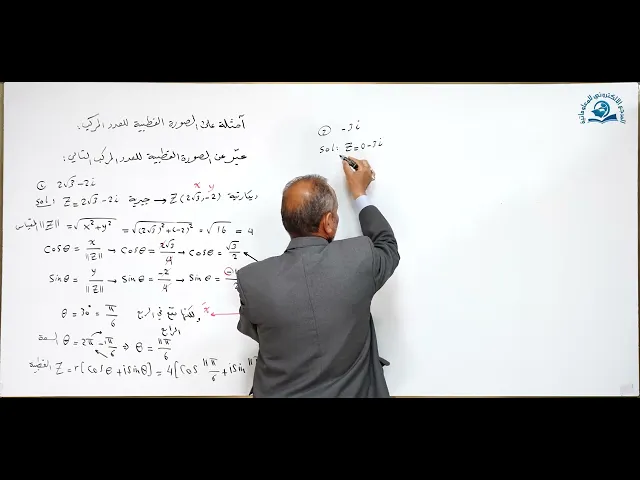 أمثلة على الصورة القطبية للعدد المركب.
عبّر عن الصورة القطبية للعدد المركب التالي:
① 2√3 - 2i
Sol: Z = 2√3 - 2i جبرية → Z(2√3, -2) ديكارتية
x y
المقياس ||Z|| = √(x² + y²) = √((2√3)² + (-2)²) = √16 = 4
Cosθ = x/||Z|| → Cosθ = 2√3/4 → Cosθ = √3/2
Sinθ = y/||Z|| → Sinθ = -2/4 → Sinθ =
θ = 30° = π/6 ولكنها تقع في الربع الرابع
السعة θ = 2π - π/6 ⇒ θ = 11π/6
القطبية Z = r[Cosθ + iSinθ] = 4[Cos 11π/6 + iSin 11π
② -5i
Sol: Z = 0 - 5i
المرجع الالكتروني للمعلوماتية